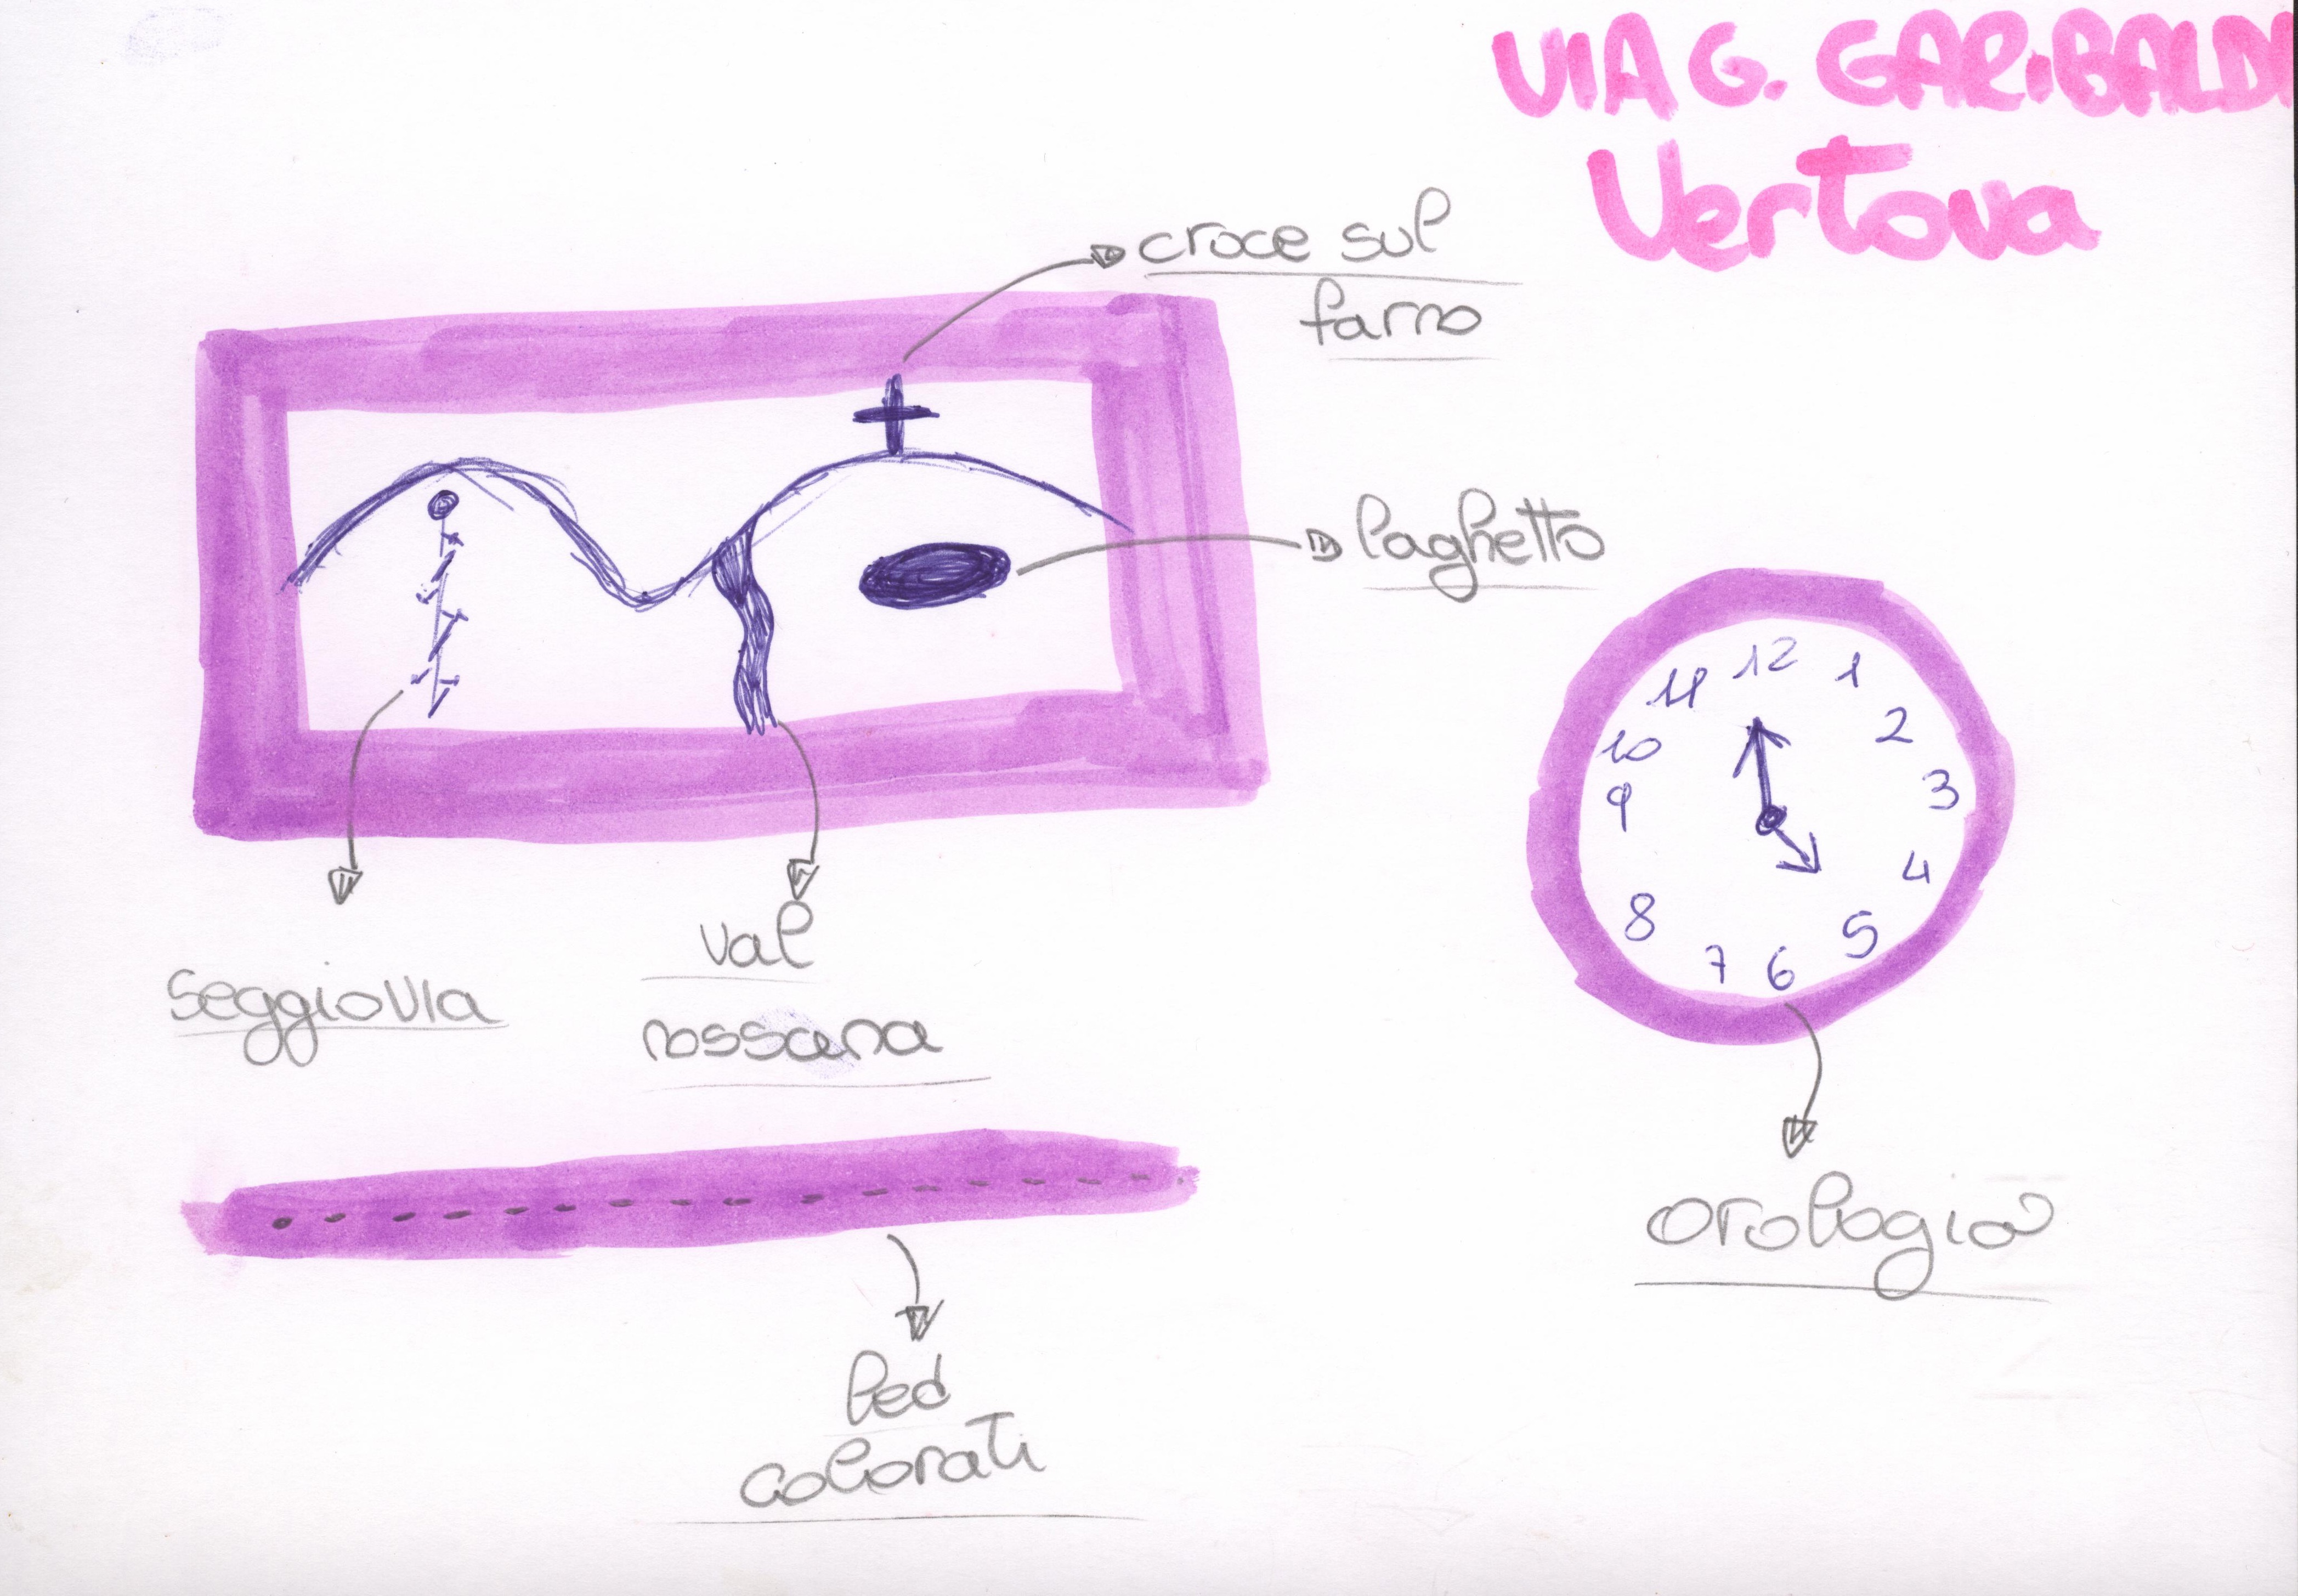 VIA G. GARIBALDI
Vertova
croce sul
farno
laghetto
12
11
1
10
2
9
3
8
4
7
6
5
seggiovia
val
rossana
orologio
led
colorati